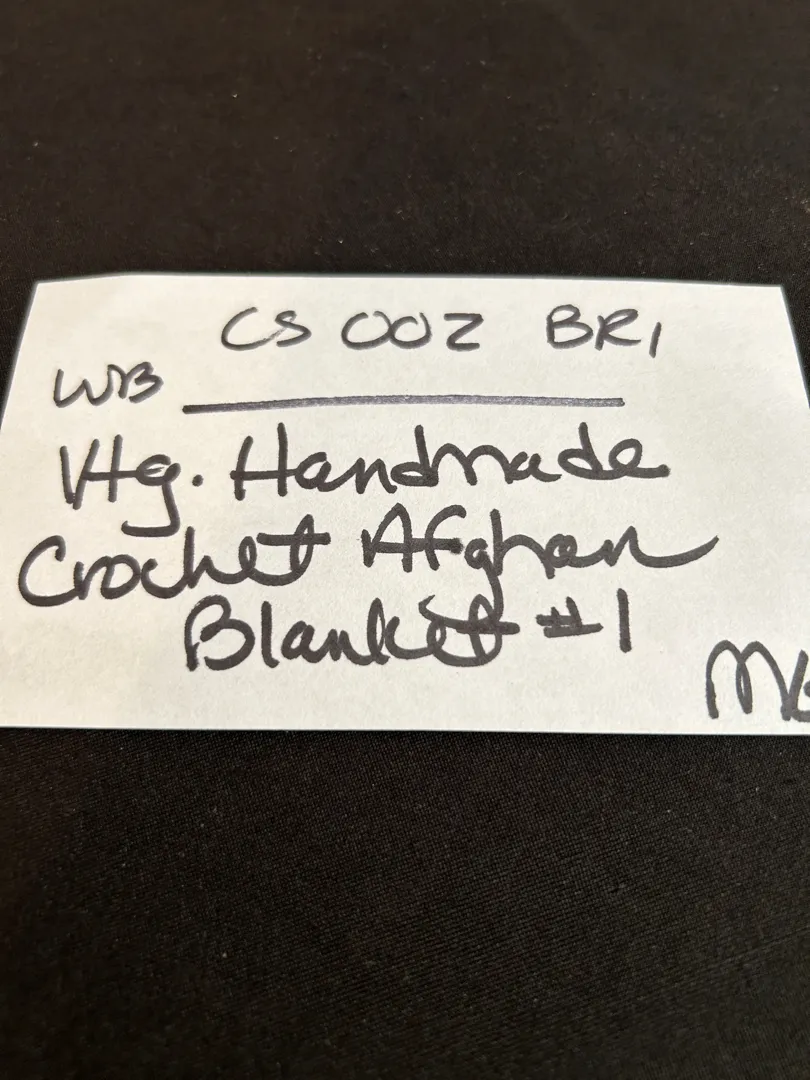 CS 002 BR1
WB
Vtg. Handmade
Crochet Afghan
Blanket #1